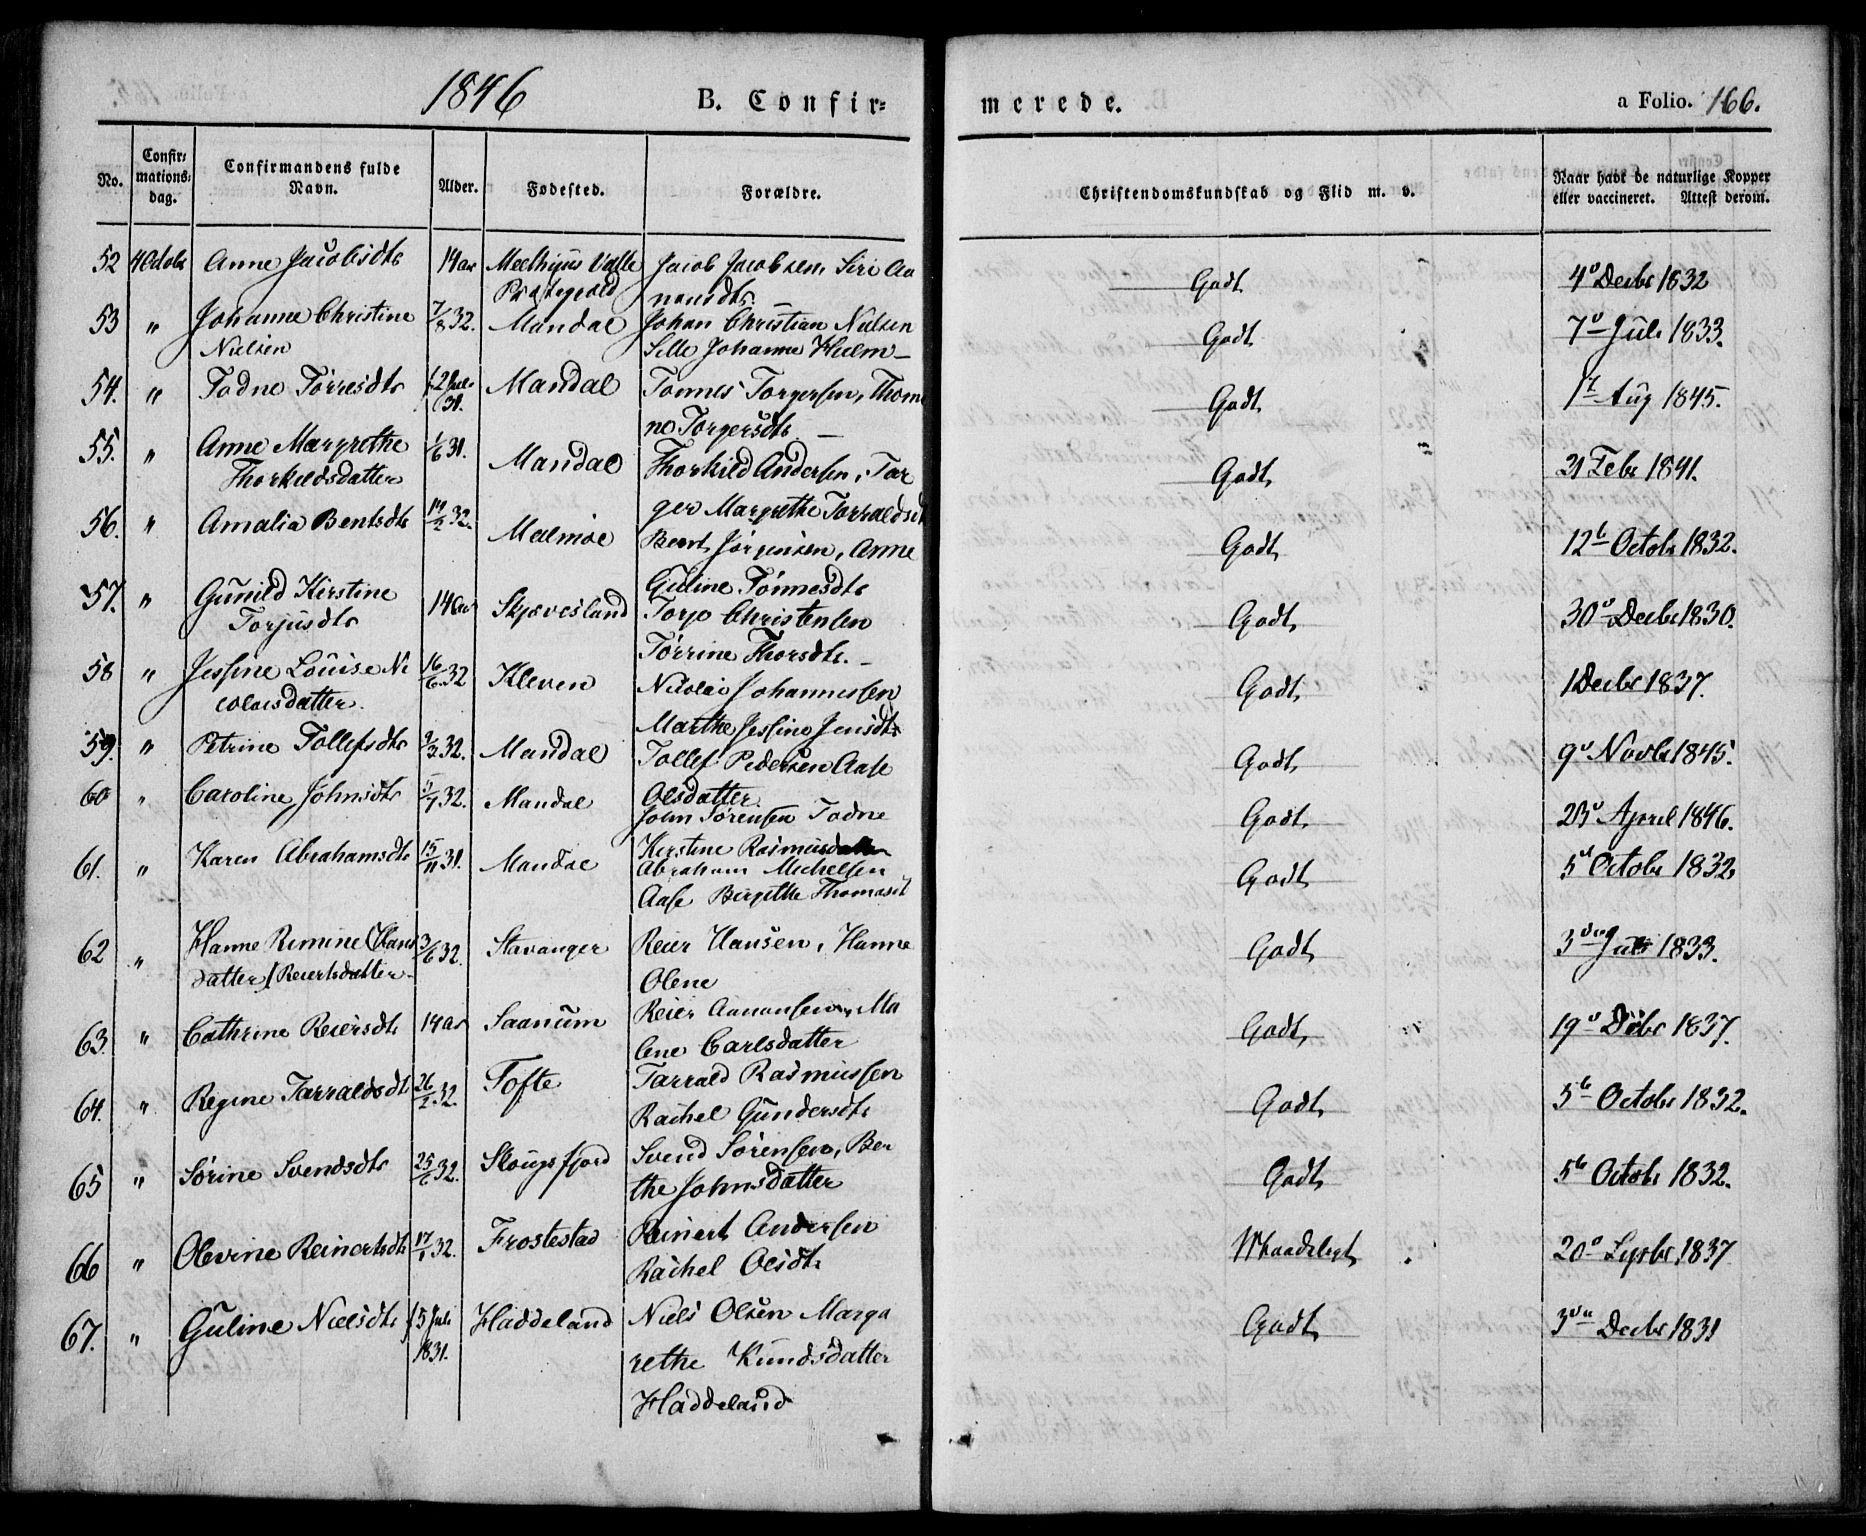 1846 B. Confir= merede. a Folio. 166.
No. Confir= mations= dag. Confirmandens fulde Navn. Alder. Fødested. Forældre. Christendomskundskab og Flid m. v. Naar havt de naturlige Kopper eller vaccineret. Attest derom.
52 4 Octobr Anne Jacobsdtr 14 aar Valle Jacob Jacobsen, Siri Aa Godt 4 Decbr 1832
Præstegield nensdtr.
53 " Johanne Christine 7/8 32. Mandal Johan Christian Nielsen Godt 7 Juli 1833.
Nielsen Sille Johanne Holm
54. " Todne Tørresdtr 12 Juli 31. Mandal Tønnes Torgersen, Thom Godt 17 Aug 1845.
ne Torgersdtr
55. " Anne Margrethe 1/6 31. Mandal Thorkild Andersen, Tor Godt 21 Febr 1841.
Thorkildsdatter ger Margrethe Torraldsdt
56. " Amalia Bentsdtr 19/2 32. Malmøe Bernt Jørgensen, Anne Godt 12 Octobr 1832.
Guline Tønnesdtr
57. " Gunild Kirstine 14 aar Skjævesland Torjo Christensen Godt 30 Decbr 1830.
Torjusdtr Tørrine Thorsdtr.
58 " Jessine Louise Ni 16/6 32 Kleven Nicolai Johannessen Godt 1 Decbr 1837.
colaisdatter. Marthe Jessine Jensdtr
59. " Petrine Tollefsdtr 32. Mandal Tollef Pedersen Aase Godt 9 Novbr 1845.
Olsdatter
60 " Caroline Johnsdtr 32. Mandal John Sørensen Todne Godt 23 April 1846.
Kirstine Rasmusdatter
61. " Karen Abrahamsdtr 15/11 31. Mandal Abraham Michelsen Godt 5 Octobr 1832
Aase Birgitte Thomasdt
62 " Hanne Remine (Hans 3/6 32. Stavanger Reier Hansen, Hanne Godt 3 1833.
datter) Reiertsdatter Olene
63. " Cathrine Reiersdtr 14 aar Saanum Reier Aanansen, Ma Godt 19 1837.
lene Carlsdatter
64. " Regine Tarraldsdt 26/2 32. Tofte Tarrald Rasmussen Godt 5 Octobr 1832.
Rachel Gundersdtr
65 " Sørine Svendsdtr 25/6 32. Skougsfjord Svend Sørensen, Ber Godt 5 Octobr 1832.
the Johnsdatter
66 " Olevine Reinertsdtr 17/1 32. Frostestad Reinert Andersen Maadeligt 20 Septbr 1837
Rachel Olsdtr
67. " Guline Nielsdtr 15 Juli 1831. Haddeland Niels Olsen Marga Godt 3 Decbr 1831
rethe Knudsdatter
Haddeland